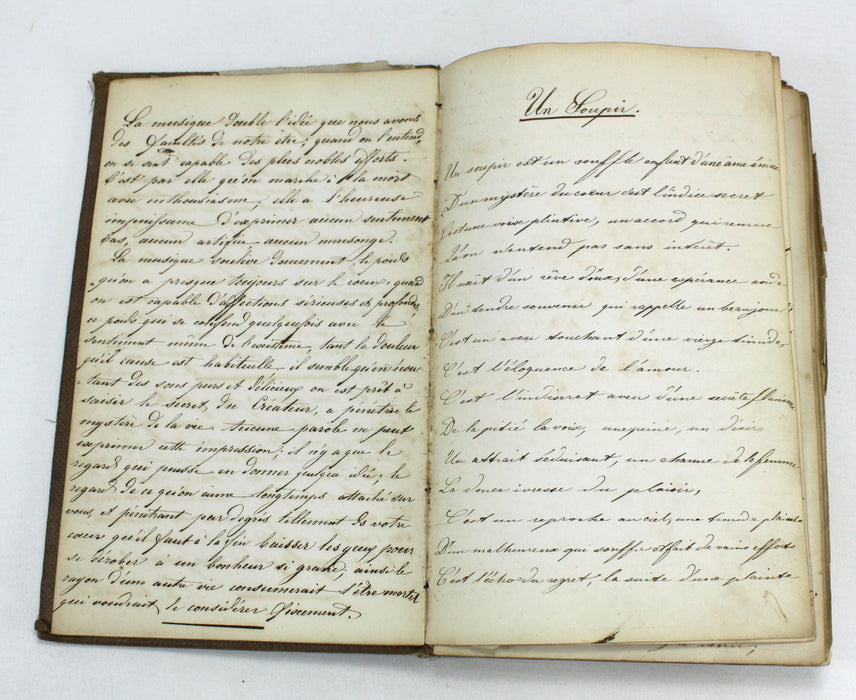 La musique double l'idée que nous avons
des facultés de notre être; quand on l'entend,
on se sent capable des plus nobles efforts.
C'est par elle qu'on marche à la mort
avec enthousiasme, elle a l'heureuse
impuissance d'exprimer aucun sentiment
bas, aucun artifice aucun mensonge.
La musique soulève doucement le poids
qu'on a presque toujours sur le cœur, quand
on est capable d'affections sérieuses et profondes
ce poids qui se confond quelquefois avec le
sentiment même de l'existence, tant la douleur
qu'il cause est habituelle, il semble qu'en écou
tant des sons purs et délicieux on est prêt à
saisir le secret du Créateur, a pénétrer le
mystère de la vie. Aucune parole ne peut
exprimer cette impression; il n'y a que le
regard qui puisse en donner quelque idée, le
regard de ce qu'on aime longtemps attaché sur
vous, et pénétrant par degrés tellement de votre
cœur qu'il faut à la fin baisser les yeux pour
se dérober à un bonheur si grand; ainsi le
rayon d'une autre vie consumerait l'être mortel
qui voudrait le considérer fixement.
Un Soupir.
Un soupir est un souffle enfant d'une âme émue
D'un mystère du cœur c'est l'indice secret
C'est une voix plintive, un accord qui remue
Qu'on n'entend pas sans intérêt.
Il naît d'un rêve doux, d'une espérance
D'un tendre souvenir qui rappelle un beau jour
C'est un aveu touchant d'une vierge timide,
C'est l'éloquence de l'amour.
C'est l'indiscret aveu d'une secrète flamme
De la pitié la voix, une prière, un désir,
Un attrait séduisant, un charme de la femme
La douce ivresse du plaisir,
C'est un reproche au ciel, une timide plainte
D'un malheureux qui souffre et fait de vains efforts
C'est l'écho du regret, la suite d'une plainte